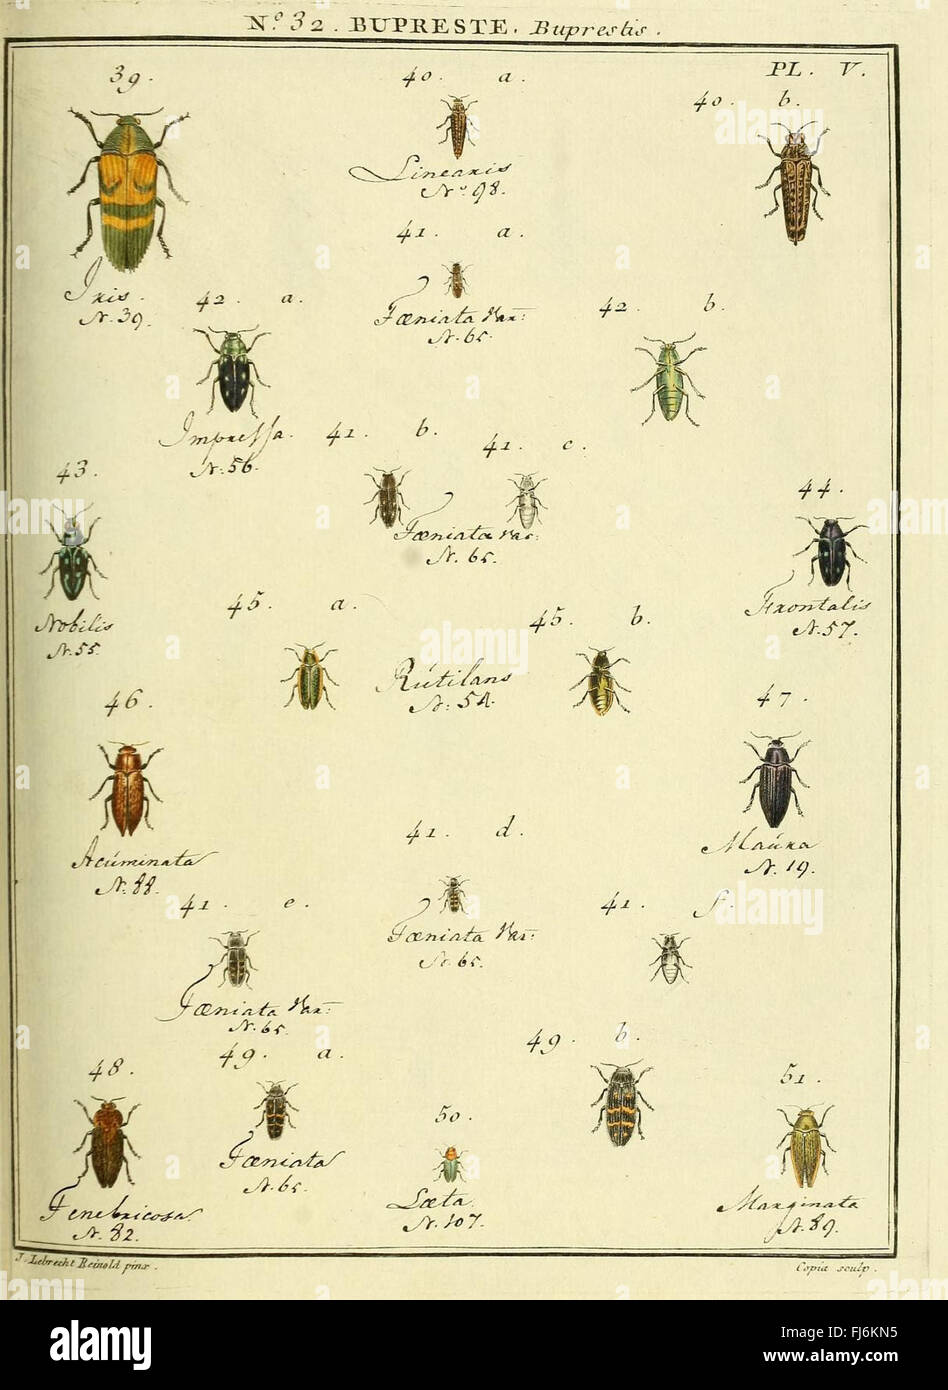 Nº. 32. BUPRESTE. Buprestis.
PL. V.
39.
40. a.
40. b.
Linearis
Nº. 98.
41. a.
Iris.
N. 39.
42. a.
Tæniata Var:
N. 65.
42. b.
Impressa.
N. 56.
41. b.
41. c.
43.
44.
Tæniata Var:
N. 65.
Nobilis
N. 55.
45. a.
45. b.
Frontalis
N. 57.
Rútilans
N. 54.
46.
47.
Acúminata
N. 88.
41. d.
Maúra
N. 19.
41. e.
Tæniata Var:
N. 65.
41. f.
Tæniata Var:
N. 65.
48.
49. a.
49. b.
50.
51.
Tæniata
N. 65.
Tenebricosa.
N. 82.
Læta.
N. 107.
Marginata
N. 89.
J. Lebrecht Reinold pinx.
Copia sculp.
alamy
Image ID: FJ6KN5
www.alamy.com